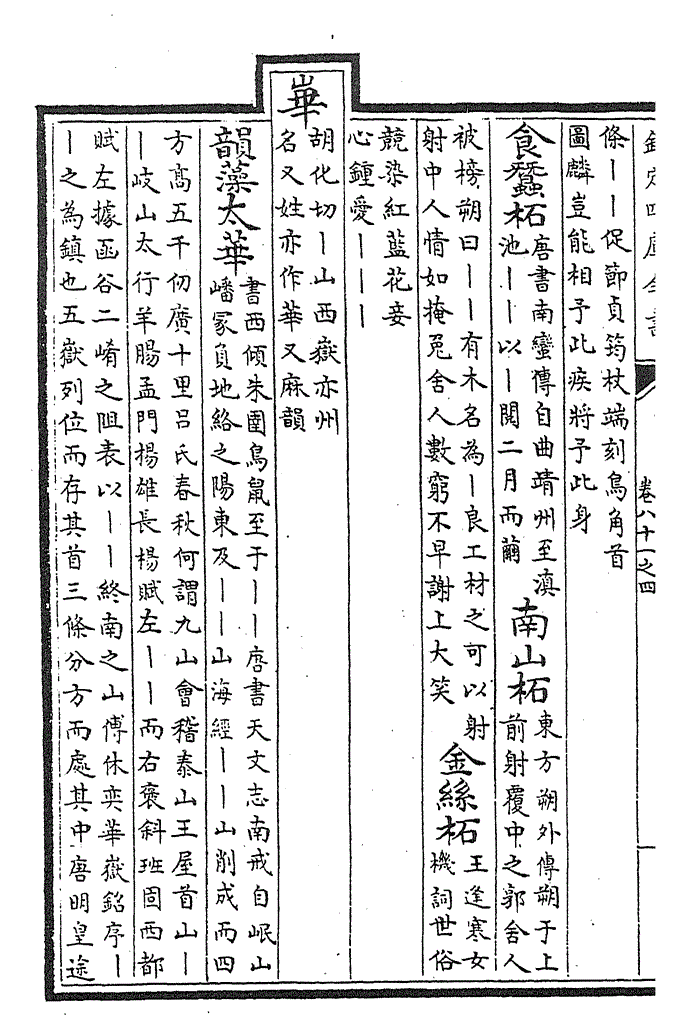 欽定四庫全書
卷八十一之四
條丨丨促節貞筠杖端刻鳥角首
圖麟豈能相予此疾將予此身
食蠶柘
唐書南蠻傳自曲靖州至滇
池丨丨以丨閱二月而繭
南山柘
東方朔外傳朔于上
前射覆中之郭舍人
被榜朔曰丨丨有木名為丨良工材之可以射
射中人情如掩兔舍人數窮不早謝上大笑
金絲柘
王逢寒女
機詞世俗
競染紅藍花妾
心鍾愛丨丨丨
崋
胡化切丨山西嶽亦州
名又姓亦作華又麻韻
韻藻太華
書西傾朱圉鳥鼠至于丨丨唐書天文志南戒自岷山
嶓冢負地絡之陽東及丨丨山海經丨丨山削成而四
方高五千仞廣十里呂氏春秋何謂九山會稽泰山王屋首山丨
丨岐山太行羊腸孟門楊雄長楊賦左丨丨而右褒斜班固西都
賦左據函谷二崤之阻表以丨丨終南之山傅休奕華嶽銘序丨
丨之為鎮也五嶽列位而存其首三條分方而處其中唐明皇途